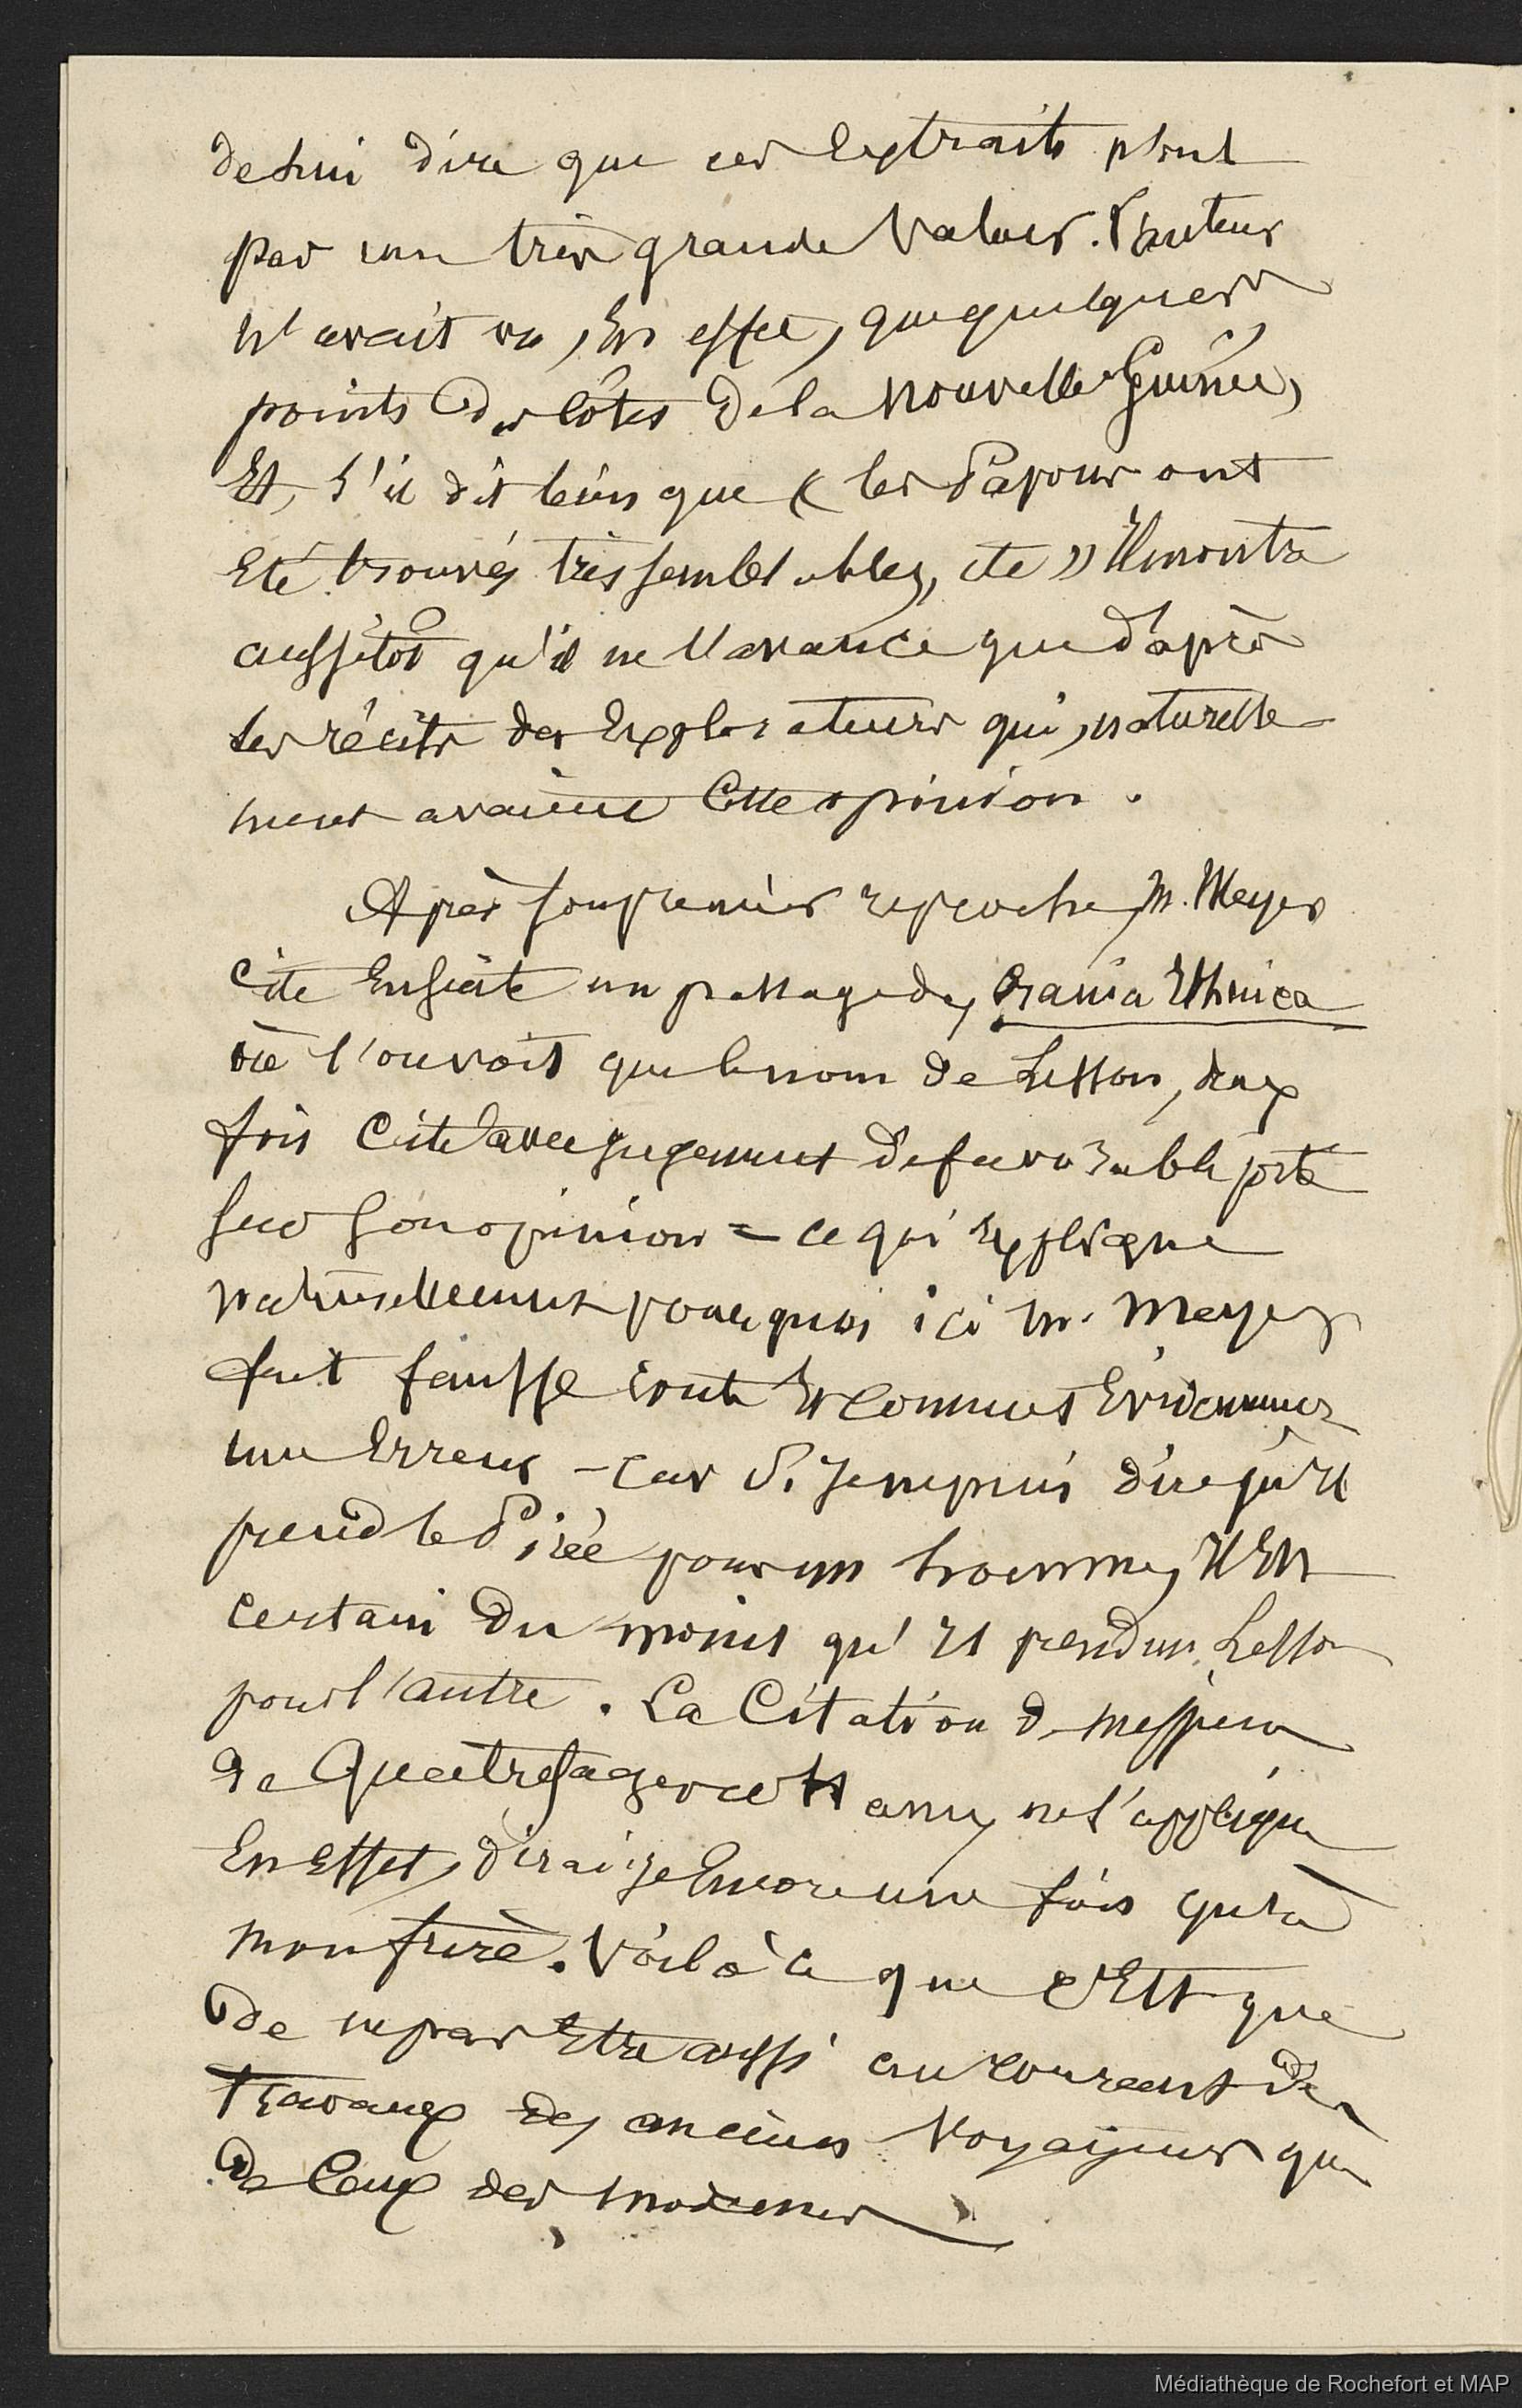 de lui dire que ces Extraits n'ont
pas une très grande Valeur. L'auteur
n'avait vu, En effet, que quelques
points des Côtes de la Nouvelle Guinée,
Et, s'il dit bien que « les Papous ont
Eté trouvés très semblables, etc » Il montre
aussitôt qu'il ne l'avance que d'après
les récits des Explorateurs qui, naturelle-
ment avaient Cette opinion.
Après son premier reproche, M. Meyer
Cite Ensuite un passage des Crania Ethnica
où l'on voit que le nom de Lesson, deux
fois Cité avec jugement défavorable porté
sur son opinion = ce qui Explique
naturellement pourquoi ici M. Meyer
fait fausse route Et Commet Evidemment
une Erreur - Car Si je ne puis dire qu'il
prend le Pirée pour un homme, Il Est
Certain du moins qu'il prend un Lesson
pour l'autre. La Citation de Messieurs
de Quatrefages et Hamy ne s'applique
En Effet, dirai je Encore une fois qu'à
mon frère. Voilà ce que c'Est que
de ne pas Etre aussi au courant des
travaux des anciens Voyageurs que
de Ceux des modernes
Médiathèque de Rochefort et MAP